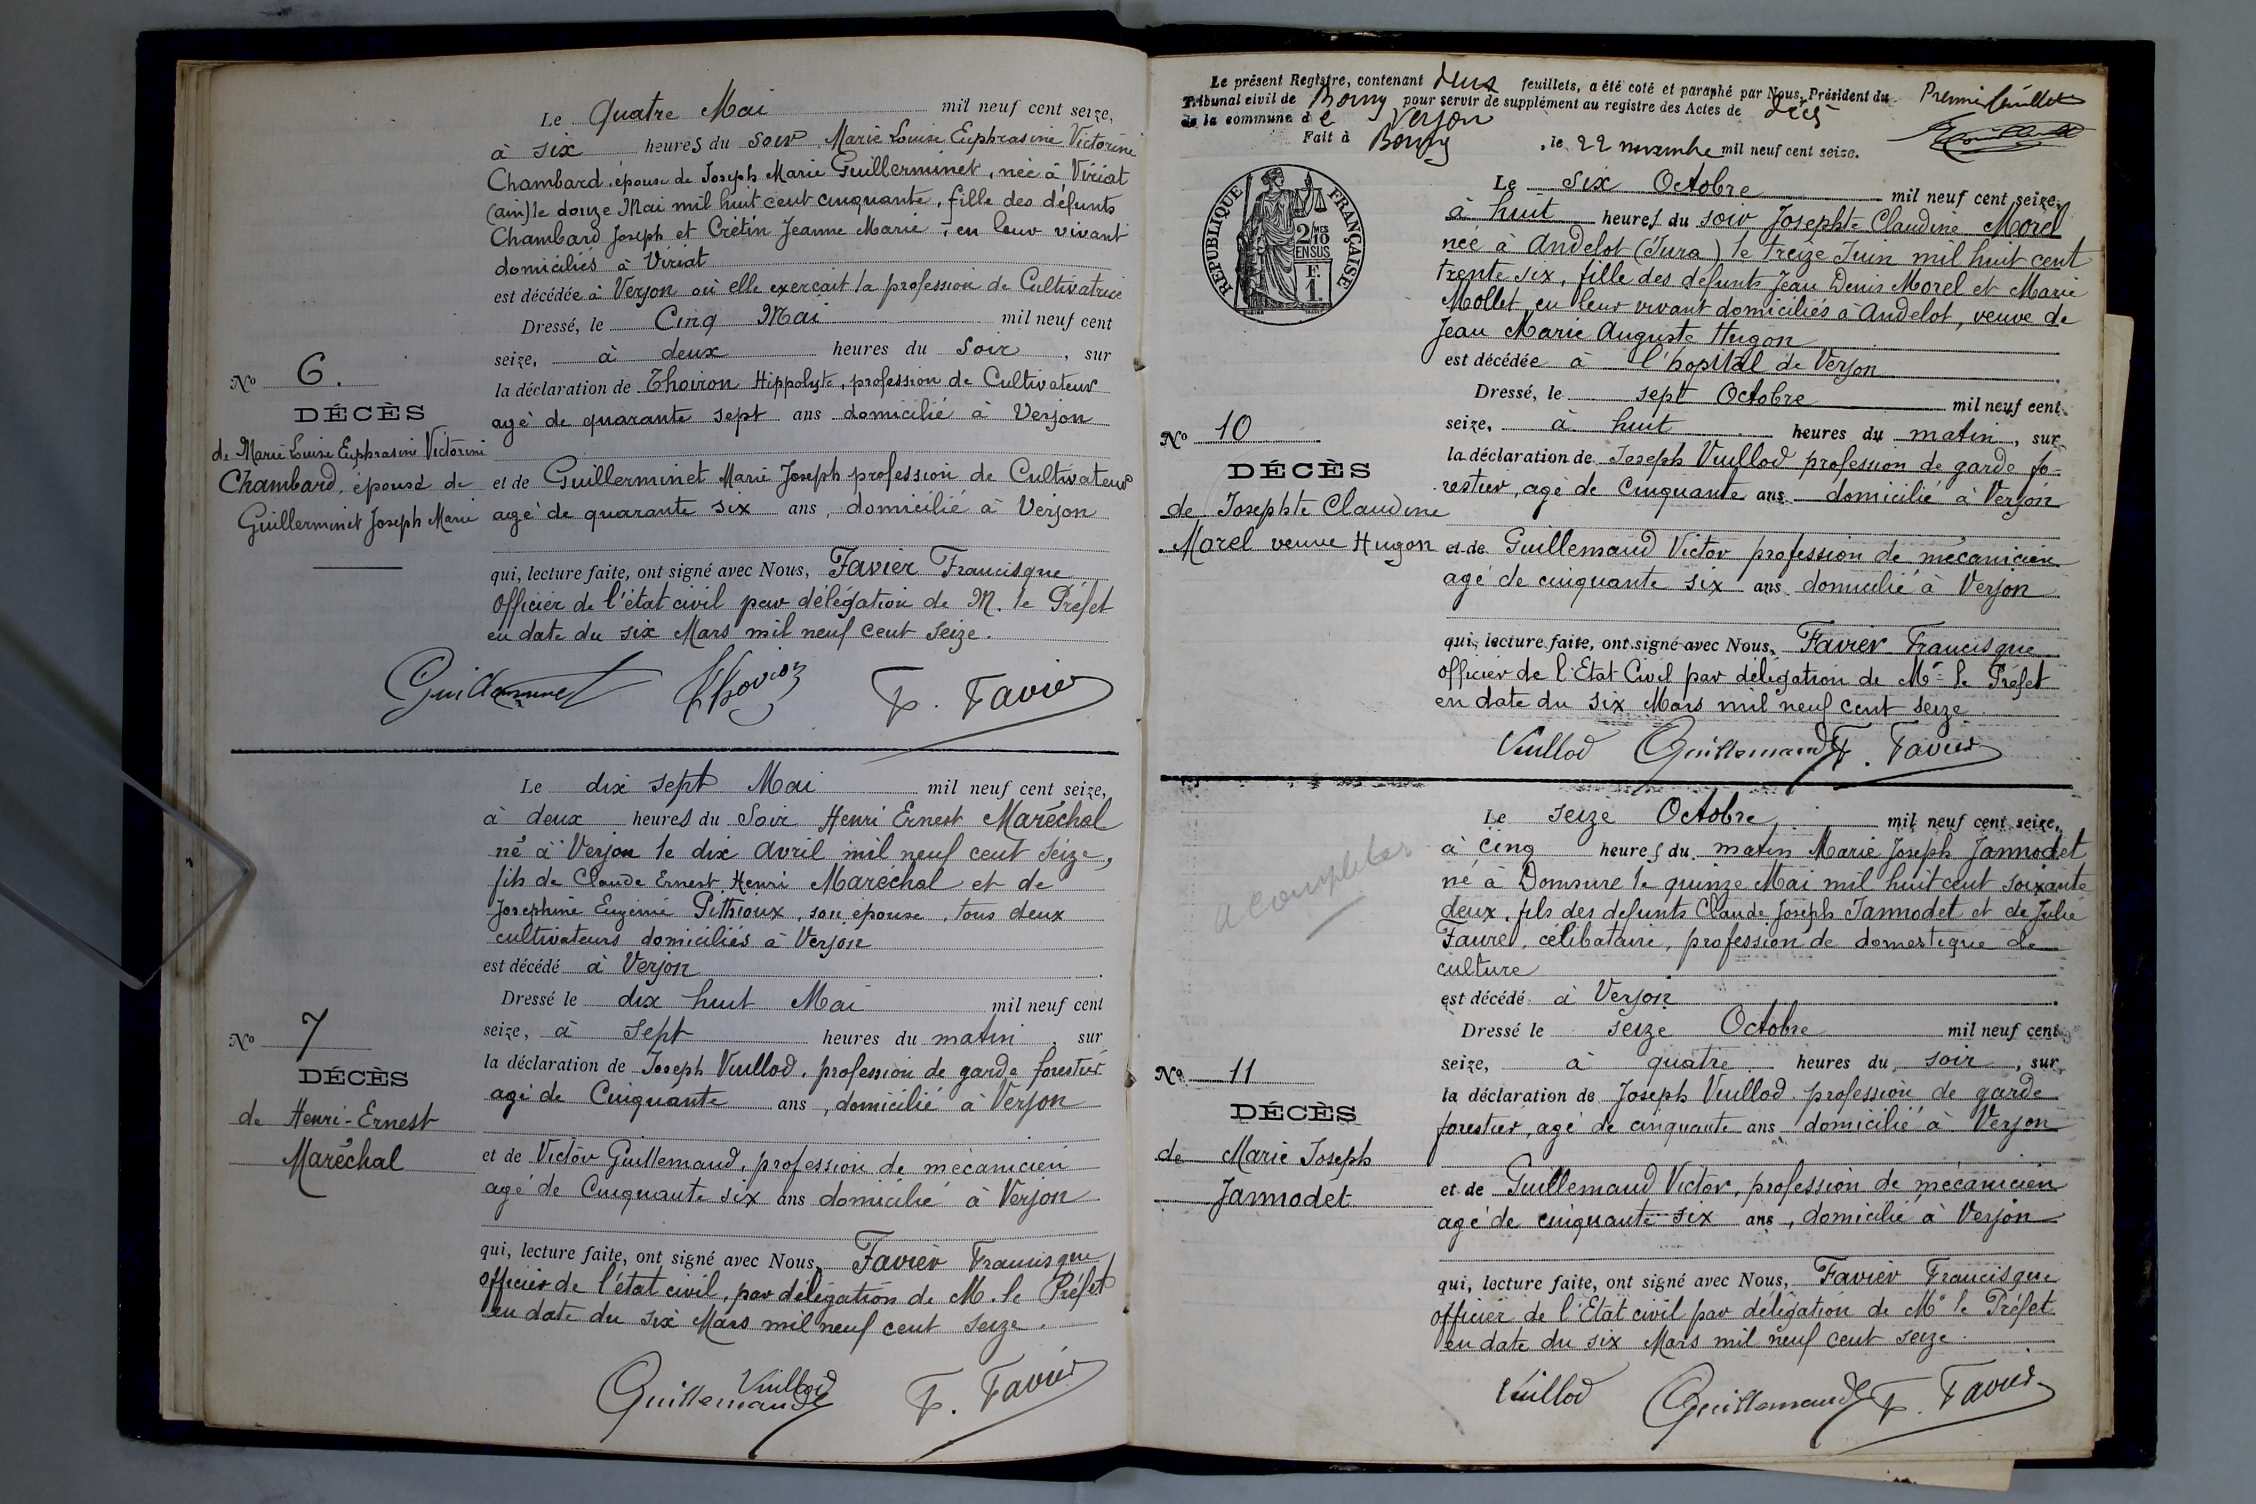 Le Quatre Mai mil neuf cent seize,
à six heures du soir Marie Louise Euphrasine Victorine
Chambard, épouse de Joseph Marie Guillerminet, née à Viriat
(ain) le douze Mai mil huit cent cinquante, fille des défunts
Chambard Joseph et Crétin Jeanne Marie, en leur vivant
domiciliés à Viriat
est décédée à Verjon où elle exerçait la profession de Cultivatrice
Dressé, le Cinq Mai mil neuf cent
seize, à deux heures du Soir, sur
la déclaration de Thoiron Hippolyte, profession de Cultivateur
agé de quarante sept ans domicilié à Verjon
et de Guillerminet Marie Joseph profession de Cultivateur
agé de quarante six ans, domicilié à Verjon
qui, lecture faite, ont signé avec Nous, Favier Francisque
Officier de l'état civil par délégation de M. le Préfet
en date du six Mars mil neuf cent seize.
Guillerminet Thoiron F. Favier
No 6.
DÉCÈS
de Marie Louise Euphrasine Victorine
Chambard, épouse de
Guillerminet Joseph Marie
Le dix sept Mai mil neuf cent seize,
à deux heures du Soir Henri Ernest Maréchal
né à Verjon le dix avril mil neuf cent seize,
fils de Claude Ernest Henri Maréchal et de
Joséphine Eugénie Pithioux, son épouse, tous deux
cultivateurs domiciliés à Verjon
est décédé à Verjon
Dressé le dix huit Mai mil neuf cent
seize, à sept heures du matin, sur
la déclaration de Joseph Vuillod, profession de garde forestier
agé de Cinquante ans, domicilié à Verjon
et de Victor Guillemaud, profession de mécanicien
agé de Cinquante six ans domicilié à Verjon
qui, lecture faite, ont signé avec Nous, Favier Francisque
Officier de l'état civil, par délégation de M. le Préfet
en date du six Mars mil neuf cent seize.
Vuillod
Guillemaud F. Favier
No 7
DÉCÈS
de Henri-Ernest
Maréchal
Le présent Registre, contenant deux feuillets, a été coté et paraphé par Nous, Président du
Tribunal civil de Bourg pour servir de supplément au registre des Actes de décès
de la commune de Verjon
Fait à Bourg, le 22 novembre mil neuf cent seize.
Premier feuillet
RÉPUBLIQUE FRANÇAISE
2/10MES
EN SUS
F.
1.
Le six Octobre mil neuf cent seize,
à huit heures du soir Josephte Claudine Morel
née à Andelot (Jura) le treize Juin mil huit cent
trente six, fille des défunts Jean Denis Morel et Marie
Mollet, en leur vivant domiciliés à Andelot, veuve de
Jean Marie Auguste Hugon
est décédée à l'hopital de Verjon
Dressé, le sept Octobre mil neuf cent
seize, à huit heures du matin, sur
la déclaration de Joseph Vuillod profession de garde fo-
restier, agé de Cinquante ans domicilié à Verjon
et de Guillemaud Victor profession de mécanicien
agé de cinquante six ans domicilié à Verjon
qui, lecture faite, ont signé avec Nous, Favier Francisque
Officier de l'Etat Civil par délégation de Mr le Préfet
en date du six Mars mil neuf cent seize
Vuillod Guillemaud F. Favier
No 10
DÉCÈS
de Josephte Claudine
Morel veuve Hugon
Le seize Octobre mil neuf cent seize,
à Cinq heures du matin Marie Joseph Jannodet
né à Domsure le quinze Mai mil huit cent soixante
deux, fils des défunts Claude Joseph Jannodet et de Julie
Faure, célibataire, profession de domestique de
culture
est décédé à Verjon
Dressé le seize Octobre mil neuf cent
seize, à quatre heures du soir, sur
la déclaration de Joseph Vuillod profession de garde
forestier, agé de cinquante ans domicilié à Verjon
et de Guillemaud Victor, profession de mécanicien
agé de cinquante six ans, domicilié à Verjon
qui, lecture faite, ont signé avec Nous, Favier Francisque
Officier de l'Etat civil par délégation de Mr le Préfet
en date du six Mars mil neuf cent seize
Vuillod Guillemaud F. Favier
a compléter
No 11
DÉCÈS
de Marie Joseph
Jannodet